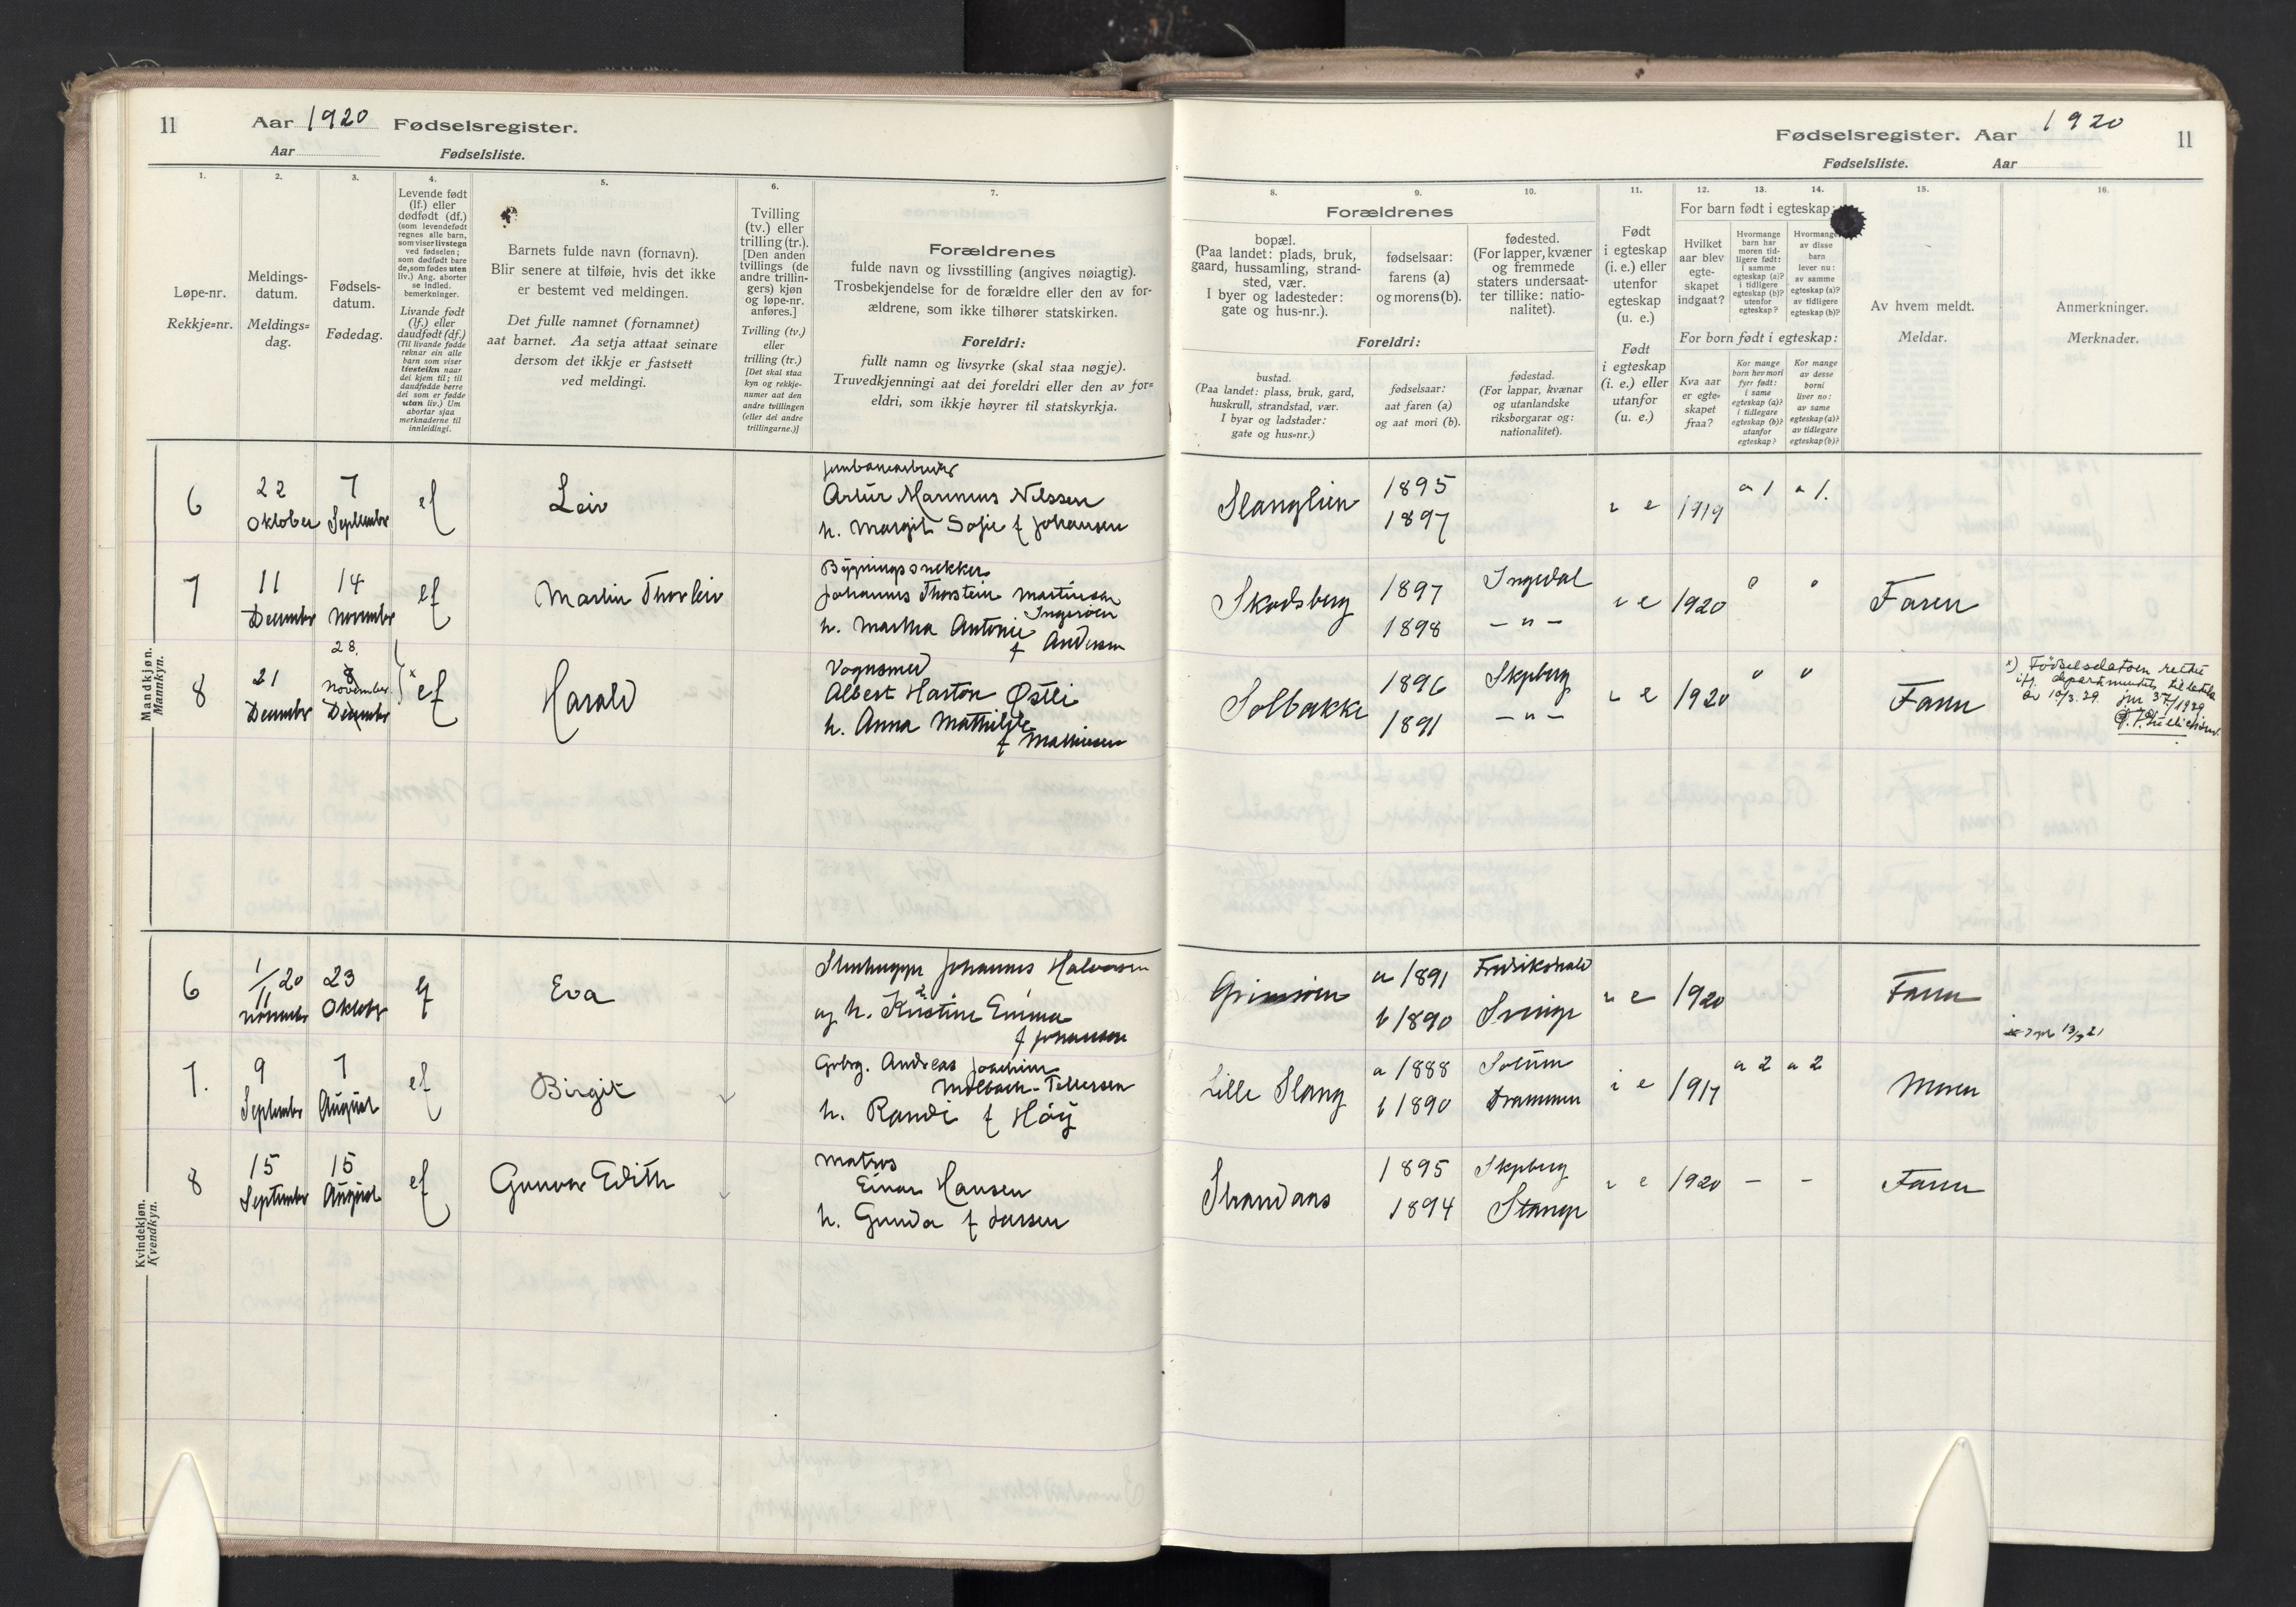 11
Aar 1920 Fødselsregister.
Aar Fødselsliste.
1.
Løpe-nr.
Rekkje=nr.
2.
Meldings-
datum.
Meldings=
dag.
3.
Fødsels-
datum.
Fødedag.
4.
Levende født
(lf.) eller
dødfødt (df.)
(som levendefødt
regnes alle barn,
som viser livstegn
ved fødselen;
som dødfødt bare
de, som fødes uten
liv.) Ang. aborter
se indled.
bemerkninger.
Livande født
(lf.) eller
daudfødt (df.)
(Til livande fødde
reknar ein alle
barn som viser
livsteikn naar
dei kjem til; til
daudfødde berre
dei som er fødde
utan liv.) Um
abortar sjaa
merknaderne til
innleidingi.
5.
Barnets fulde navn (fornavn).
Blir senere at tilføie, hvis det ikke
er bestemt ved meldingen.
Det fulle namnet (fornamnet)
aat barnet. Aa setja attaat seinare
dersom det ikkje er fastsett
ved meldingi.
6.
Tvilling
(tv.) eller
trilling (tr.).
[Den anden
tvillings (de
andre trillin-
gers) kjøn
og løpe-nr.
anføres.]
Tvilling (tv.)
eller
trilling (tr.)
[Det skal staa
kyn og rekkje-
numer aat den
andre tvillingen
(eller dei andre
trillingarne.)]
7.
Forældrenes
fulde navn og livsstilling (angives nøiagtig).
Trosbekjendelse for de forældre eller den av for-
ældrene, som ikke tilhører statskirken.
Foreldri:
fullt namn og livsyrke (skal staa nøgje).
Truvedkjenningi aat dei foreldri eller den av for=
eldri, som ikkje høyrer til statskyrkja.
Mandkjøn.
Mannkyn.
6
22
Oktober
7
September
lf
Leiv
Artur Marinius Nilssen
h. Margit Sofie f Johansen
7
11
December
14
November
lf
Martin Thorleiv
Bygningssnekker
Johannes Thorstein Martinsen
Ingerøen
h. Martha Antonie
f Andersen
8
21
December
28.
8
November
December
x lf
Harald
Vognsmed
Albert Harton Østli
h. Anna Mathilde
f Mathiesen
Kvindekjøn.
Kvendkyn.
6
1/11 20
November
23
Oktober
lf
Eva
Stenhugger Johannes Halvorsen
og h. Kristine Emma
f Johansen
7.
9
September
7
August
lf
Birgit
Grbrg. Andreas Joachim
Molbach-Tellefsen
h. Randi f Høy
8
15
September
15
August
lf
Gunvor Edith
Matros
Einar Hansen
h. Gunda f Larsen
Fødselsregister. Aar 1920
11
Fødselsliste. Aar
8.
Forældrenes
bopæl.
(Paa landet: plads, bruk,
gaard, hussamling, strand-
sted, vær.
I byer og ladesteder:
gate og hus-nr.).
Foreldri:
bustad.
(Paa landet: plass, bruk, gard,
huskrull, strandstad, vær.
I byar og ladstader:
gate og hus=nr.)
9.
fødselsaar:
farens (a)
og morens (b).
fødselsaar:
aat faren (a)
og aat mori (b).
10.
fødested.
(For lapper, kvæner
og fremmede
staters undersaat-
ter tillike: natio-
nalitet).
fødestad.
(For lappar, kvænar
og utanlandske
riksborgarar og:
nationalitet).
11.
Født
i egteskap
(i. e.) eller
utenfor
egteskap
(u. e.)
Født
i egteskap
(i. e.) eller
utanfor
(u. e.)
12.
13.
14.
For barn født i egteskap:
Hvilket
aar blev
egte-
skapet
indgaat?
Hvormange
barn har
moren tid-
ligere født:
i samme
egteskap (a)?
i tidligere
egteskap (b)?
utenfor
egteskap?
Hvormange
av disse
barn
lever nu:
av samme
egteskap (a)?
av tidligere
egteskap (b)?
For born født i egteskap:
Kva aar
er egte=
skapet
fraa?
Kor mange
born hev mori
fyrr født:
i same
egteskap (a)?
i tidlegare
egteskap (b)?
utanfor
egteskap?
Kor mange
av desse
borni
liver no:
av same
egteskap (a)?
av tidlegare
egteskap (b)?
15.
Av hvem meldt.
Meldar.
16.
Anmerkninger.
Merknader.
Slanglien
1895
1897
i e
1919
a 1
a 1.
Skodsberg
1897
1898
Ingedal
— " —
i e
1920
0
0
Faren
Solbakke
1896
1891
Skjeberg
— " —
i e
1920
0
0
Faren
x) Fødselsdatoen rettet
ifg. departementets tillatelse
av 10/3. 29.
a 1891
b 1890
Fredrikshald
i e
1920
Faren
Lille Slang
a 1888
b 1890
Solum
Drammen
i e
1917
a 2
a 2
Moren
Strandaas
1895
1894
Skjeberg
Stange
i e
1920
—
—
Faren